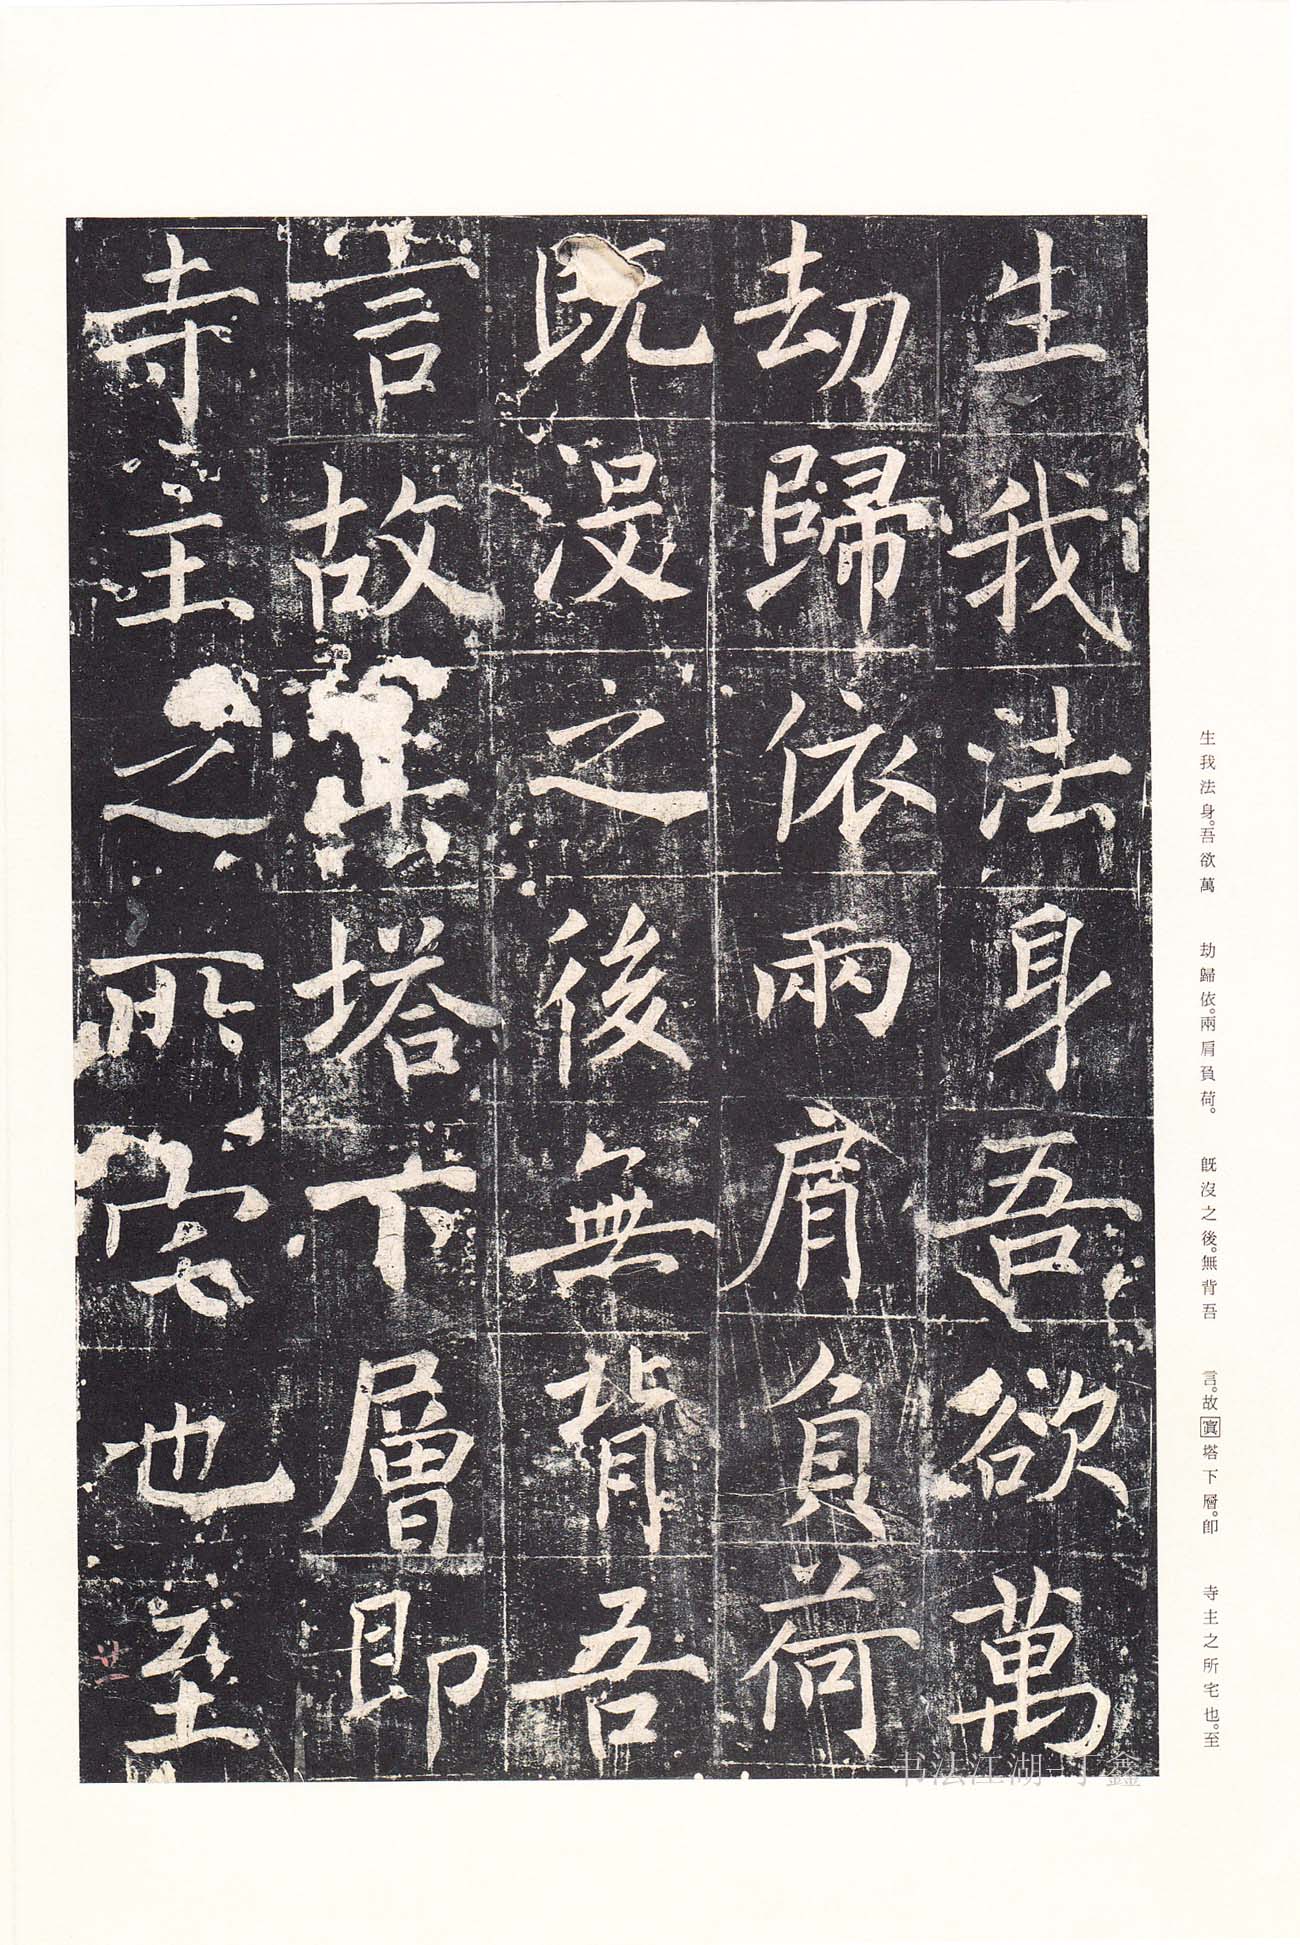 生我法身吾欲萬
劫歸依兩肩負荷
既没之後無背吾
言故寘塔下層即
寺主之所宅也至
生我法身。吾欲萬　劫歸依。兩肩負荷。　既沒之後。無背吾　言。故寘塔下層。卽　寺主之所宅也。至
书法江湖-丁鑫